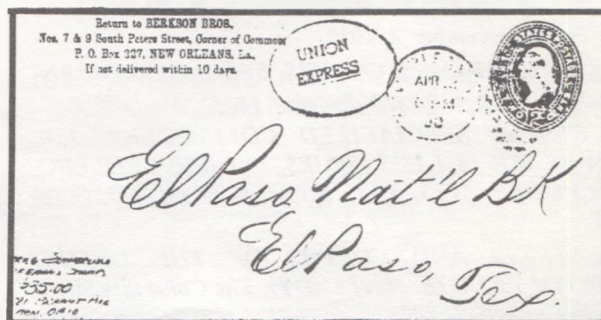 Return to BERKSON BROS,
Nos. 7 & 9 South Peters Street, Corner of Common
P. O. Box 227, NEW ORLEANS, La.
If not delivered within 10 days.
UNION
EXPRESS
APR
6 PM
90
El Paso Nat'l BK
El Paso,
Tex.
$35.00
OHIO